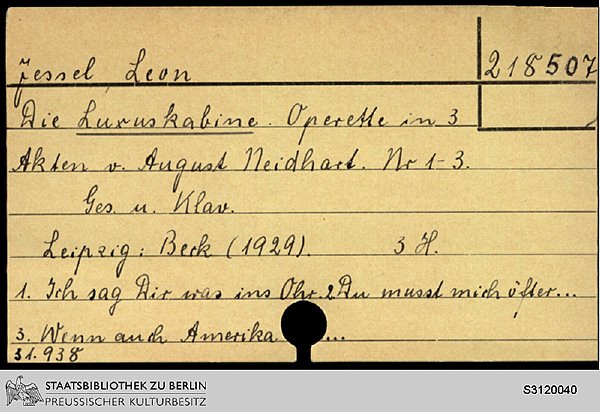 Jessel, Leon
218507
Die Luxuskabine. Operette in 3
Akten v. August Neidhart. Nr 1-3.
Ges. u. Klav.
Leipzig: Beck (1929). 3 H.
1. Ich sag Dir was ins Ohr. 2 Du musst mich öfter...
3. Wenn auch Amerika ...
31.938
STAATSBIBLIOTHEK ZU BERLIN
PREUSSISCHER KULTURBESITZ
S3120040